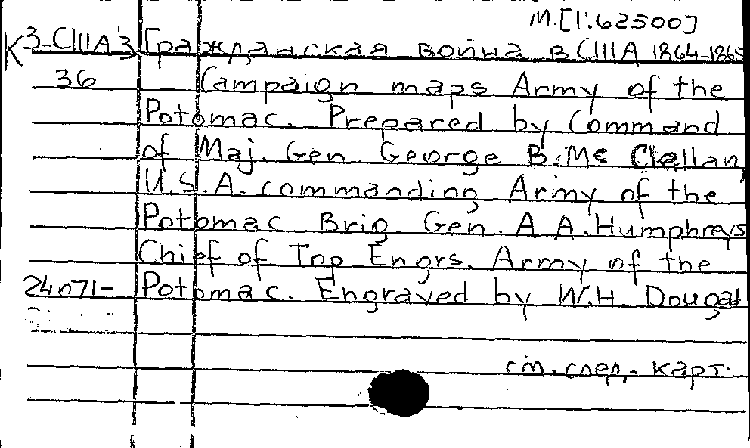 М.[1:62500]
К 3-СШАЗ Гражданская война в США 1864-1865
36 Campaign maps Army of the
Potomac. Prepared by Command
of Maj. Gen. George B. Mc Clellan,
U.S.A. commanding Army of the
Potomac Brig. Gen. A A. Humphreys
Chief of Top Engrs. Army of the
24071- Potomac. Engraved by W.H. Dougal
см. след. карт.